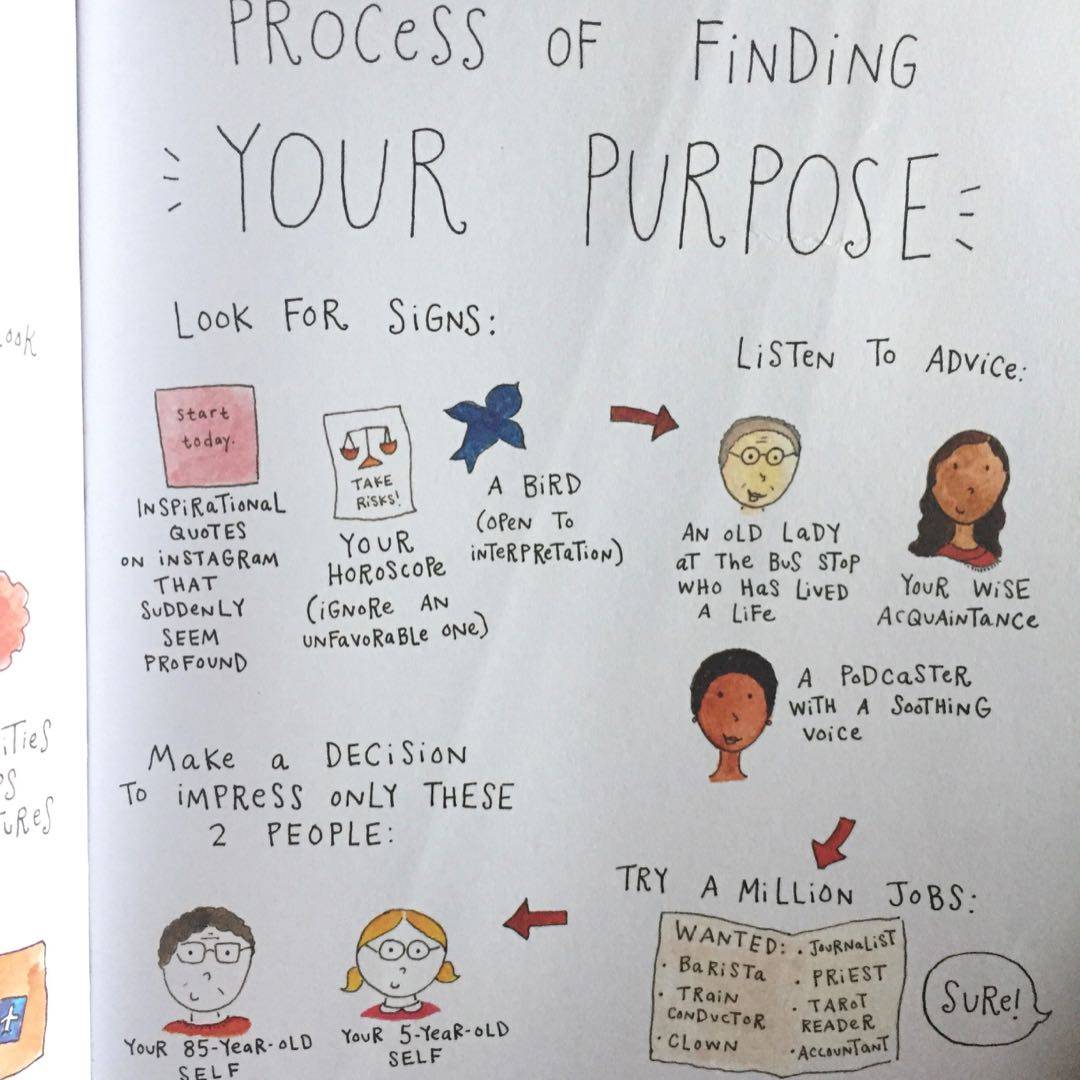 PROCESS OF FINDING
YOUR PURPOSE
LOOK FOR SIGNS:
start
today.
INSPIRATIONAL
QUOTES
ON INSTAGRAM
THAT
SUDDENLY
SEEM
PROFOUND
TAKE
RISKS!
YOUR
HOROSCOPE
(IGNORE AN
UNFAVORABLE ONE)
A BIRD
(OPEN TO
INTERPRETATION)
LISTEN TO ADVICE:
AN OLD LADY
AT THE BUS STOP
WHO HAS LIVED
A LIFE
YOUR WISE
ACQUAINTANCE
A PODCASTER
WITH A SOOTHING
VOICE
TRY A MILLION JOBS:
WANTED:
• BARISTA
• TRAIN
CONDUCTOR
• CLOWN
• JOURNALIST
• PRIEST
• TAROT
READER
• ACCOUNTANT
SURE!
MAKE A DECISION
TO IMPRESS ONLY THESE
2 PEOPLE:
YOUR 85-YEAR-OLD
SELF
YOUR 5-YEAR-OLD
SELF